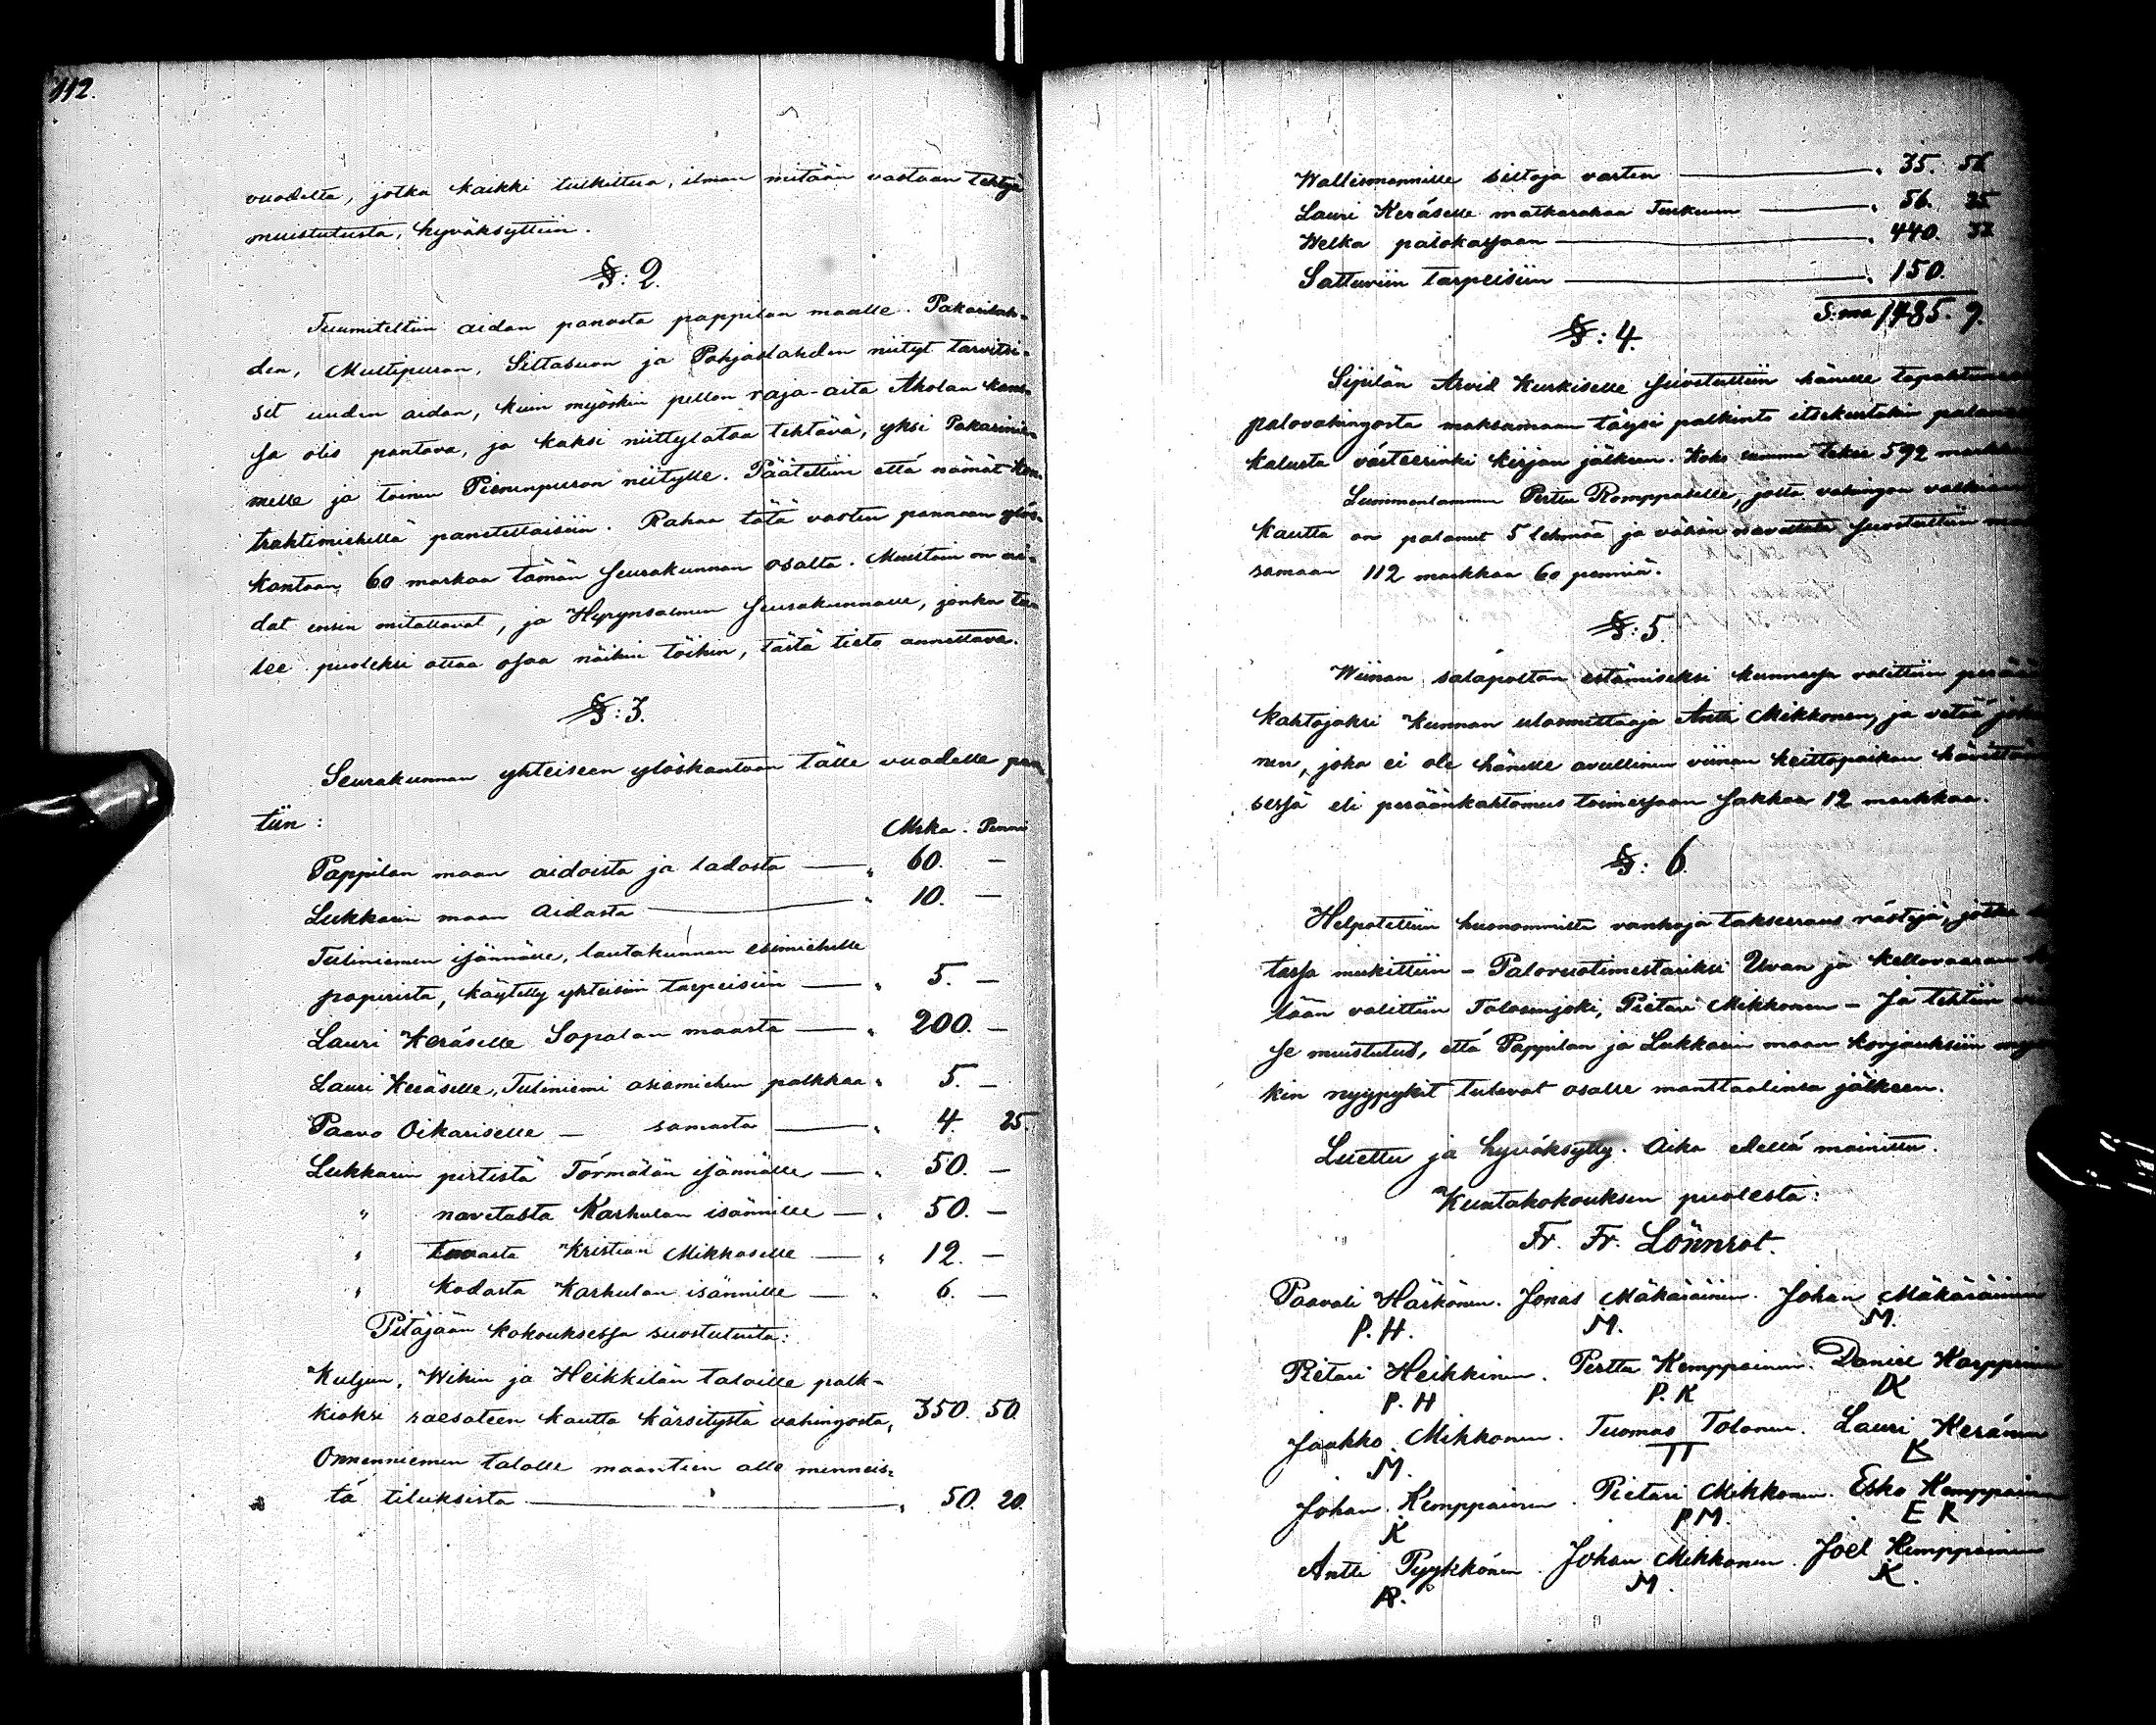 112.
vuodelta, jotka kaikki tutkittua, ilman mitään vastaan tehtyä
muistutusta, hyväksyttiin.
§: 2.
Tuumiteltiin aidan panosta pappilan maalle. Pakarilah-
den, Multipuron, Siltasuon ja Pohjaslahden niityt tarvitsi-
sit uuden aidan, kuin myöskin pellon raja-aita Aholan kans-
sa olis pantava, ja kaksi niittylatoa tehtävä, yksi Pakarinie-
melle ja toinen Pienenpuron niitylle. Päätettiin että nämät kon-
trahtimiehellä panetettaisiin. Rahaa tätä vasten pannaan ylös-
kantoon 60 markaa tämän seurakunnan osalta. Muutoin on ai-
dat ensin mitattavat, ja Hyrynsalmen seurakunnalle, jonka tu-
lee puoleksi ottaa osaa näihin töihin, tästä tieto annettava.
§: 3.
Seurakunnan yhteiseen ylöskantoon tälle vuodelle pan-
tiin:
Mrka. Penni
Pappilan maan aidoista ja ladosta — „ 60. —
Lukkarin maan aidasta — „ 10. —
Tuliniemen isännälle, lautakunnan esimiehelle
papirista, käytetty yhteisiin tarpeisiin — „ 5. —
Lauri Keräselle Sopalan maasta — „ 200. —
Lauri Keräselle, Tuliniemi asiamiehen palkkaa „ 5. —
Paavo Oikariselle — samasta — „ 4. 25.
Lukkarin pirtistä Törmälän isännälle — „ 50. —
„ navetasta Karhulan isännille — „ 50. —
„ Kristian Mikkoselle — „ 12. —
„ kodasta Karhulan isännille — „ 6. —
Pitäjään kokouksessa suostutuita:
Kuljun, Wihin ja Heikkilän taloille palk-
kioksi raesateen kautta kärsitystä vahingosta, 350. 50.
Onnenniemen talolle maantien alle menneis-
tä tiluksista — „ 50. 20.
Wallesmannille siltoja varten — „ 35. 56
Lauri Keräselle matkarahaa Turkuun — „ 56. 25
Welka palokassaan — „ 440. 33
Sattuviin tarpeisiin — „ 150.
S:ma 1485. 9.
§: 4.
Sipilän Arvid Kurkiselle suostuttiin hänelle
palovahingosta maksamaan täysi palkinto itsekustakin
kalusta värteerinki kirjan jälkeen. Koko summa tekee 592
Pertu Romppaselle, jolta vahingon
kautta on palanut 5 lehmää ja vähän navettata suostuttiin
samaan 112 markkaa 60 penniä.
§: 5.
Wiinan salapolton estämiseksi kunnassa valittiin
kahtojaksi kunnan ulosmittaaja Antti Mikkonen, ja vetää
nen, joka ei ole hänelle avullinen viinan keittopaikan
sessä eli peräänkahtomus toimessaan sakkoa 12 markkaa.
§: 6.
Helpotettiin huonommilta vanhoja takseraus rästyjä, jotka
tassa merkittiin — Paloruotimestariksi Uvan ja Kellovaaran
lään valittiin Tolosenjoki, Pietari Mikkonen — Ja tehtiin
se muistutus, että Pappilan ja Lukkarin maan korjauksiin
kin nyypykit tulevat osalle manttaalinsa jälkeen.
Luettu ja hyväksytty. Aika edellä mainittu.
Kuntakokouksen puolesta:
Fr. Fr. Lönnrot.
Paavali Härkönen. Jonas Mäkäräinen. Johan Mäkäräinen
P. H. M. M.
Pietari Heikkinen. Perttu Kemppainen. Daniel Karppinen
P. H P. K DK
Jaakko Mikkonen. Tuomas Tolonen. Lauri Keränen
M. TT
Johan Kemppainen. Pietari Mikkonen. Esko Kemppainen
K PM. E K
Antti Pyykkönen. Johan Mikkonen. Joel Kemppainen
M. K.